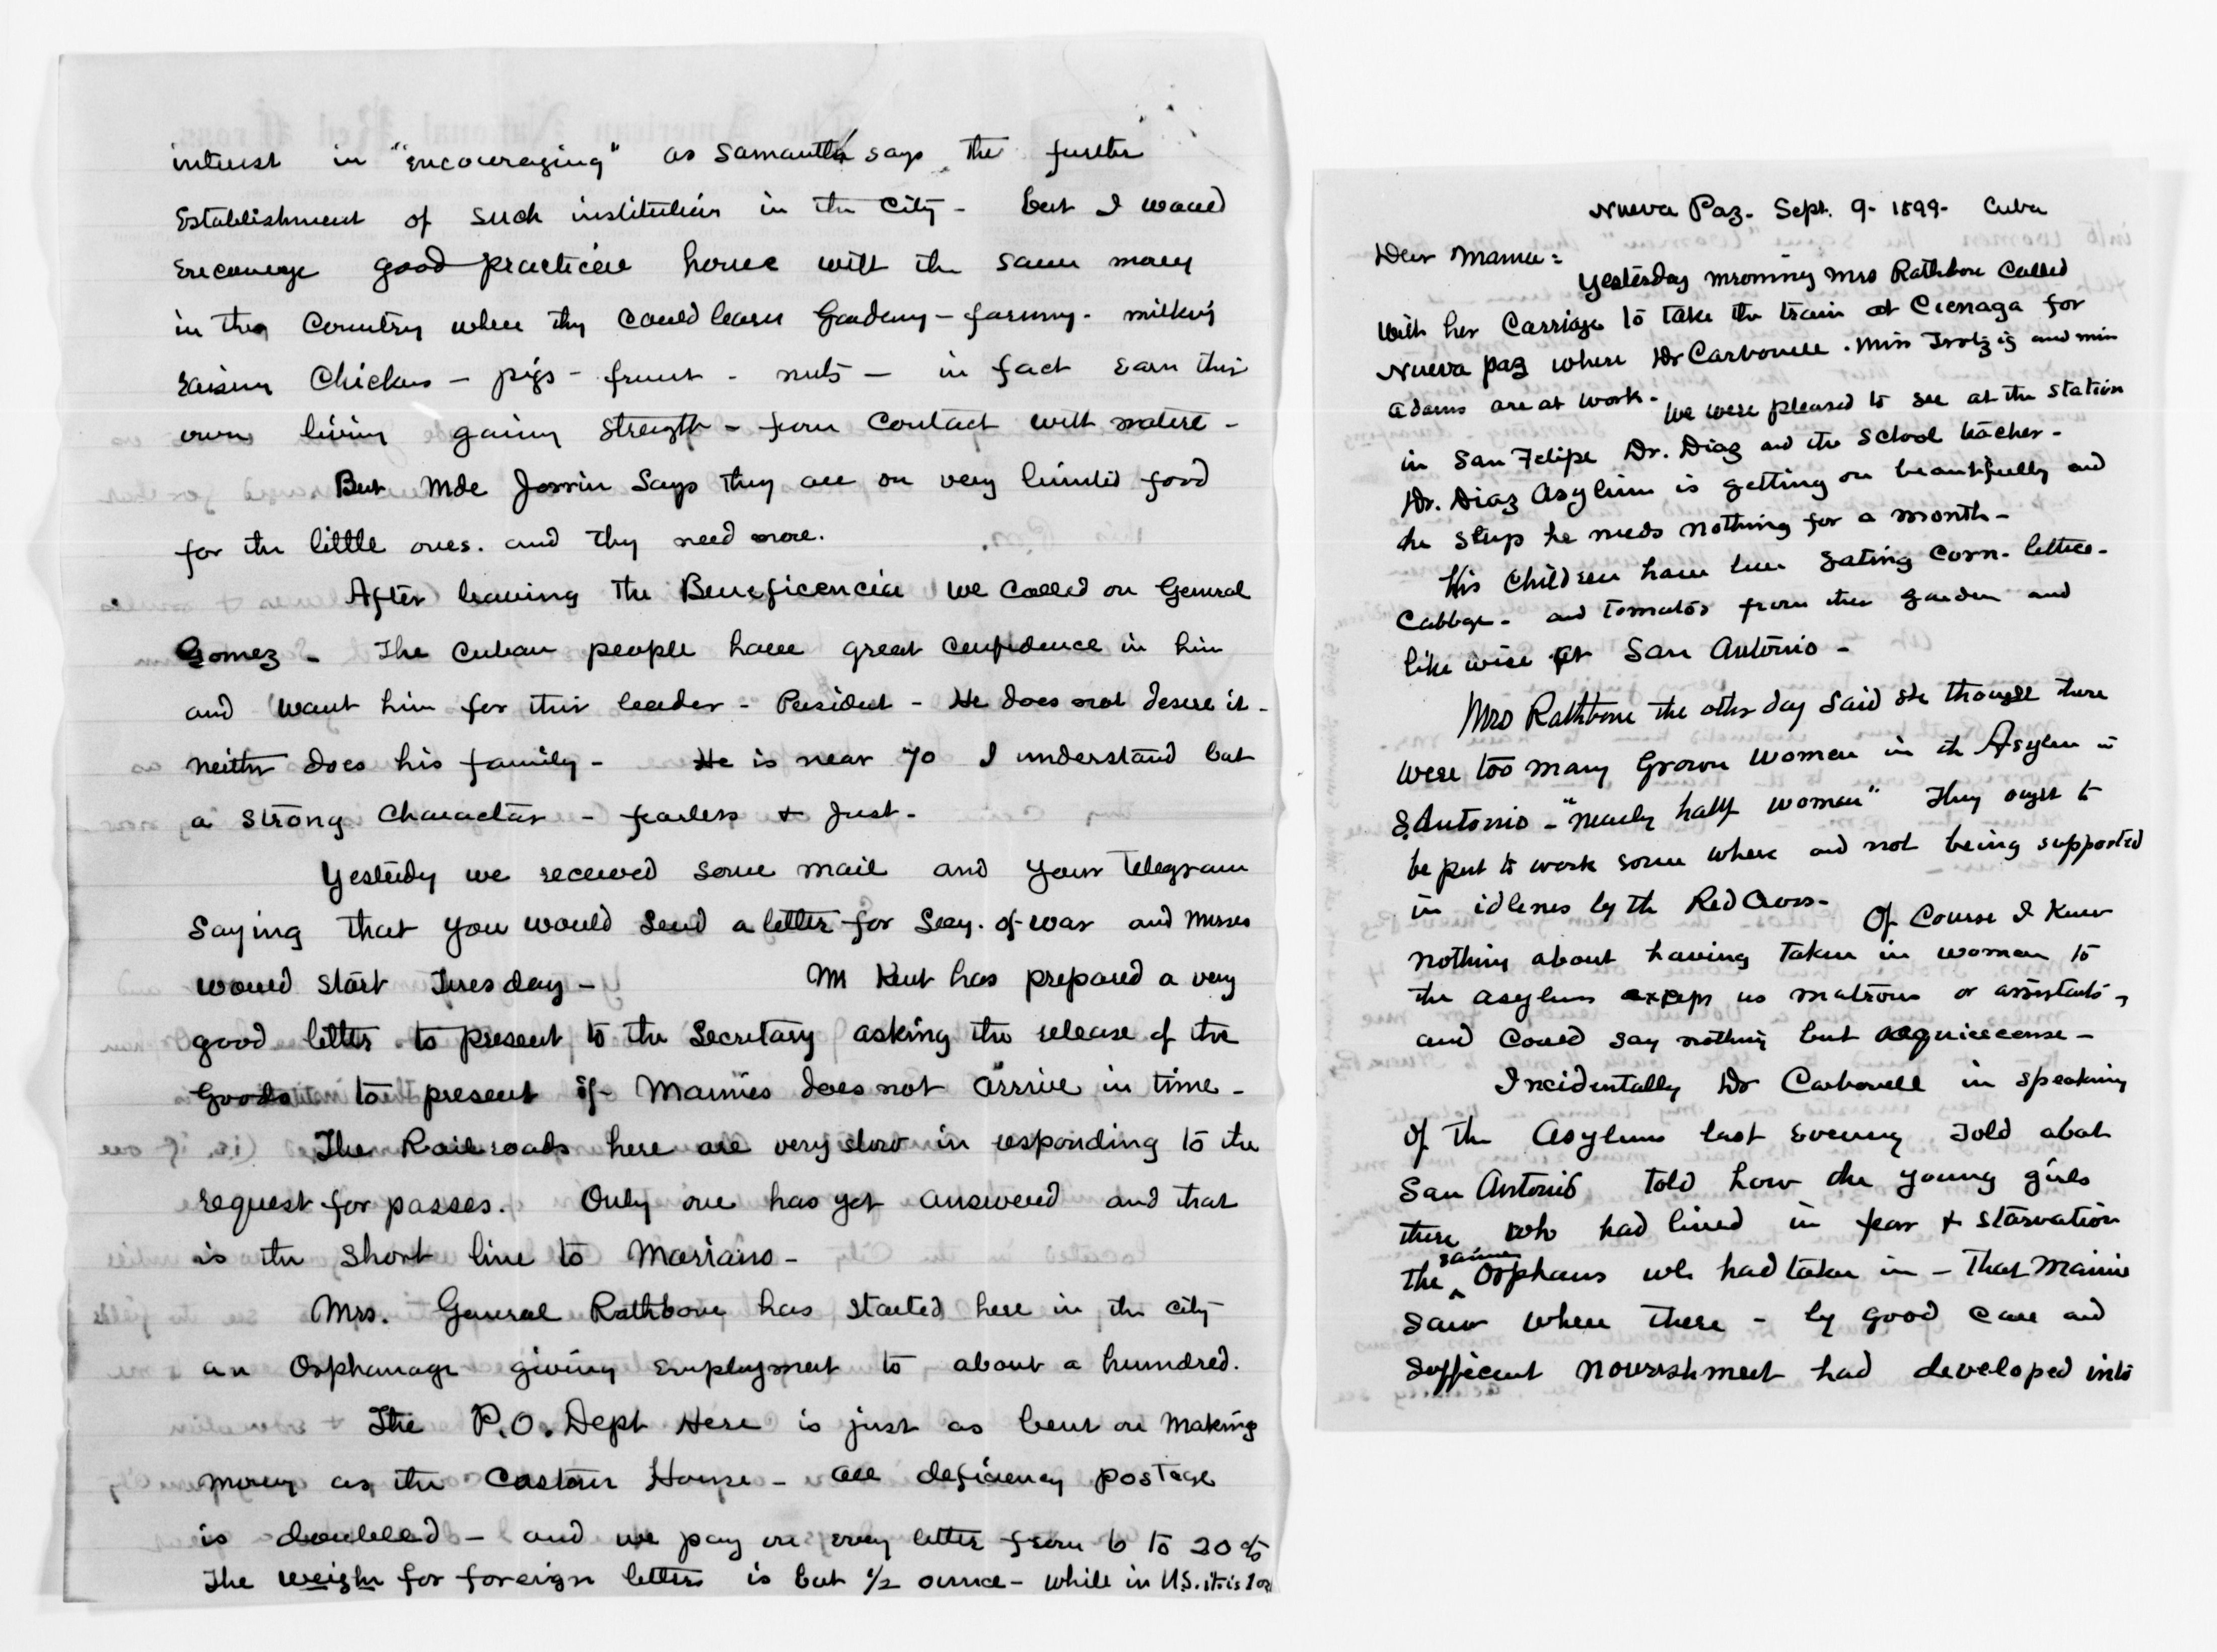 interest in "encouraging" as Samantha says the further
Establishment of such institutions in the City - but I would
Encourage good practical homes with the same money
in the Country where they could learn Gardening - farming - milking
raising Chickens - pigs - fruit - nuts - in fact earn their
own living gaining strength - from Contact with nature -
But Mde Jorrin Says they are on very limited food
for the little ones. and they need more.
After leaving the Beneficencia we called on General
Gomez - The Cuban people have great confidence in him
and want him for their leader - President - He does not desire it -
neither does his family - He is near 70 I understand but
a strong Character - fearless & Just -
Yesterday we received some mail and your telegram
saying that you would send a letter for Secy. of war and Messes
would start Tuesday - Mr Kent has prepared a very
good letter to present to the Secretary asking the release of the
Goods to present if Mamies does not arrive in time -
The Railroads here are very slow in responding to the
request for passes. Only one has yet answered and that
is the short line to Mariano -
Mrs. General Rathbone has started here in the city
an Orphanage giving Employment to about a hundred.
The P.O. Dept Here is just as bent on making
money as the Custom House - all deficiency postage
is doubled - and we pay on every letter from 6 to 20 cts
The weight for foreign letters is but 1/2 ounce - while in U.S. it is 1 oz
Nueva Paz - Sept. 9 - 1899 - Cuba
Dear Mamie:
Yesterday mrorning Mrs Rathbone Called
with her Carriage to take the train at Cienaga for
Nueva paz where Dr Carbonell . Miss Trotzig and min
adams are at work - We were pleased to see at the station
in San Felipe Dr. Diaz and the school teacher -
Dr. Diaz Asylum is getting on beautifully and
he says he needs nothing for a month -
His Children have been eating corn - lettice -
Cabbage - and tomatos from their garden and
like wise at San Antonio -
Mrs Rathbone the other day said she thought there
were too many Grown women in the Asylum in
S. Antonio - "nearly half woman" They ought to
be put to work some where and not being supported
in idlenes by the Red Cross - Of Course I knew
nothing about having taken in woman to
the asylum except as matrons or assistants,
and could say nothing but acquicecense -
Incidentally Dr Carbonell in speaking
of the Asylums last evening told abot
San Antonio told how the young girls
there who had lived in fear & starvation
the same Orphans we had taken in - that Mamie
saw when there - by good care and
sufficent nourishment had developed into